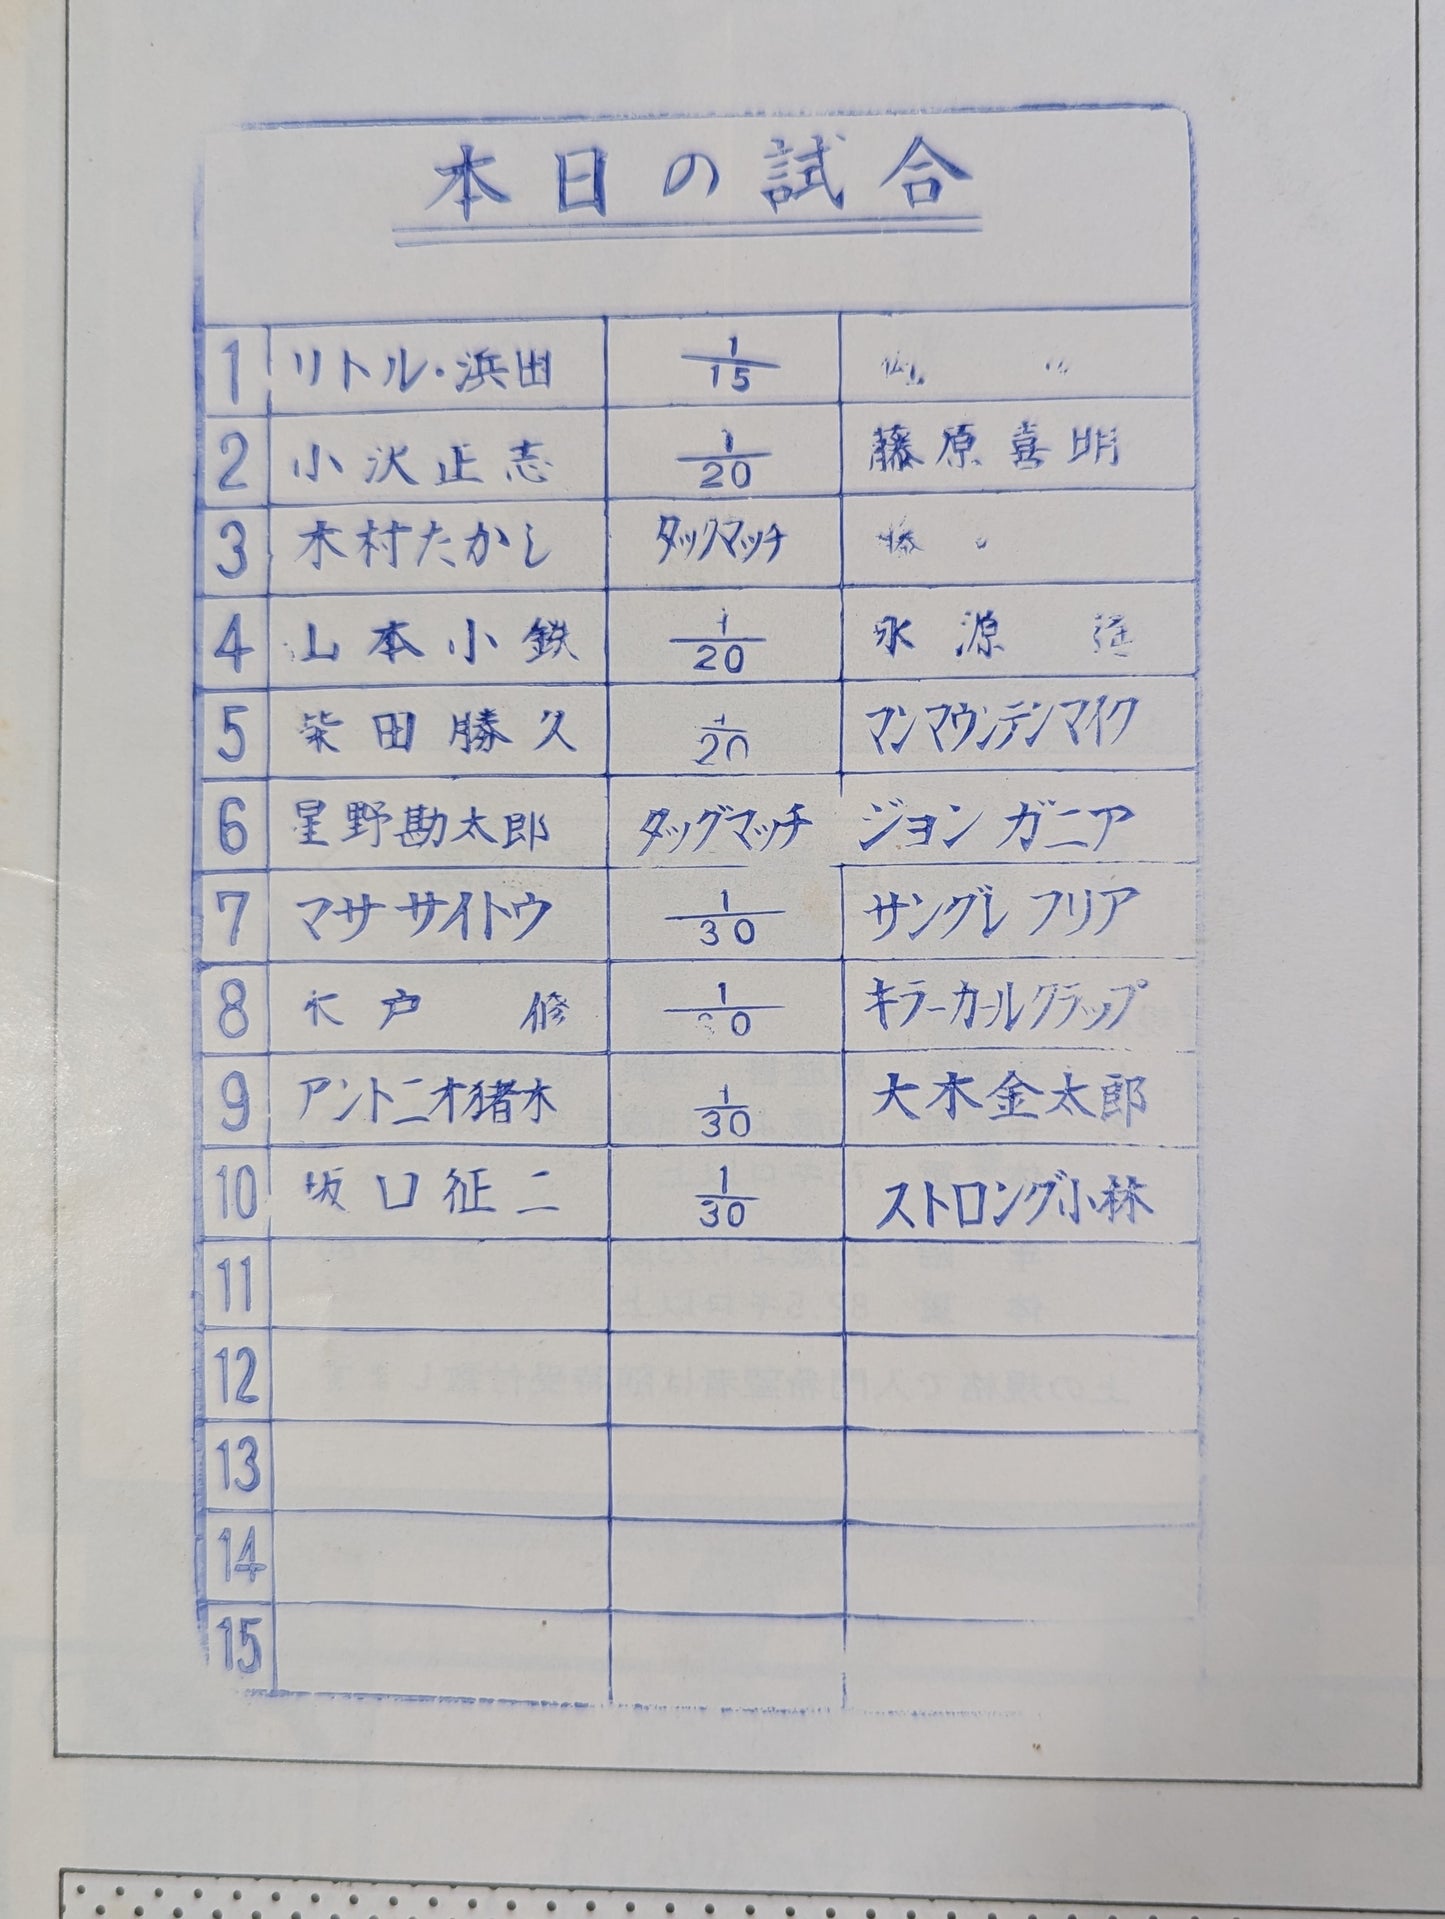 本日の試合
1 リトル・浜田 1/15
2 小沢正志 1/20 藤原喜明
3 木村たかし タッグマッチ
4 山本小鉄 1/20 永源遥
5 柴田勝久 1/20 マンマウンテンマイク
6 星野勘太郎 タッグマッチ ジョン ガニア
7 マサ サイトウ 1/30 サングレ フリア
8 木戸 修 1/30 キラーカールクラップ
9 アントニオ猪木 1/30 大木金太郎
10 坂口征二 1/30 ストロング小林
11
12
13
14
15